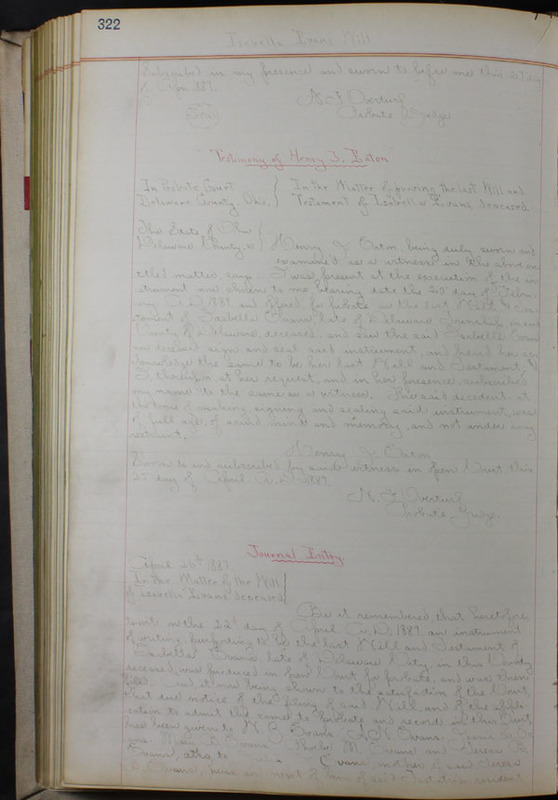 322
Isabella Evans Will
Subscribed in my presence and sworn to before me this 22 day
of Apr. 1887.
Probate Judge
Seal
Testimony of Henry J. Eaton
In Probate Court } In the Matter of proving the last Will and
Delaware County, Ohio. } Testament of Isabella Evans, deceased
The State of Ohio
Delaware County, ss } Henry J. Eaton, being duly sworn and
examined as a witness in the above en-
titled matter, says I was present at the execution of the in-
strument now shown to me bearing date the 20 day of Febru-
ary A.D. 1889 and offered for probate as the last Will & Tes-
tament of Isabella Evans late of Delaware Township, in said
County of Delaware, deceased, and saw the said Isabella Evans
now deceased sign and seal said instrument, and heard her ac-
knowledge the same to be her last Will and Testament,
I, thereupon, at her request, and in her presence, subscribed
my name to the same as a witness. The said decedent at
the time of making, signing and sealing said instrument, was
of full age, of sound mind and memory, and not under any
restraint.
Henry J. Eaton
Sworn to and subscribed by said witness in open Court this
day of April A.D. 1889.
Probate Judge.
Journal Entry.
April 26th 1887.
In the Matter of the Will }
of Isabella Evans deceased }
Be it remembered that heretofore,
to wit: on the 22d day of April A.D. 1889 an instrument
of writing, purporting to be the last Will and Testament of
Isabella Evans late of Delaware City, in this County
deceased, was produced in open Court for probate, and was then
filed and it now being shown to the satisfaction of the Court,
that due notice of the filing of said Will, and of the appli-
cation to admit the same to Probate and record in this Court
has been given to W. C. Evans
Evans M. Evans and
Evans, Evans mother of said
Evans, next of kin of said Testatrix resident